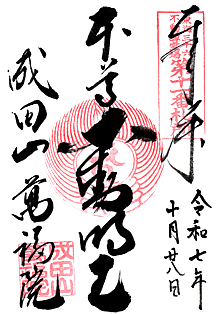 奉拝
第十一番札所
本尊
不動明王
成田山
萬福院
令和七年
十月廿八日
成田山